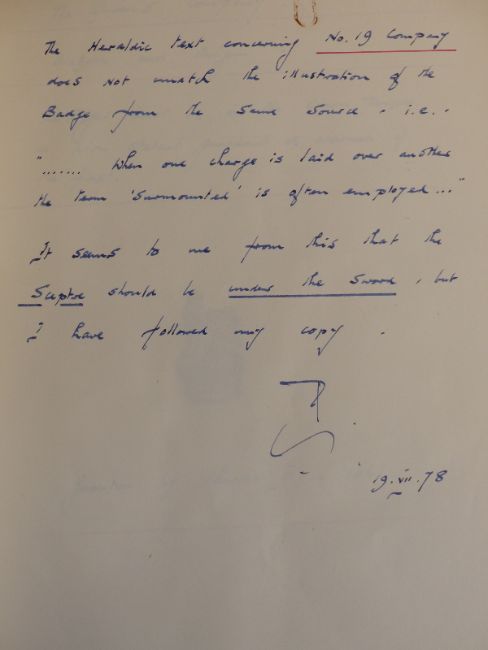 The Heraldic text concerning No. 19 Company
does not match the illustration of the
Badge from the same source - i.e. -
"....... When one charge is laid over another
the term 'Surmounted' is often employed..."
It seems to me from this that the
Sceptre should be under the Sword, but
I have followed my copy.
19.vii.78